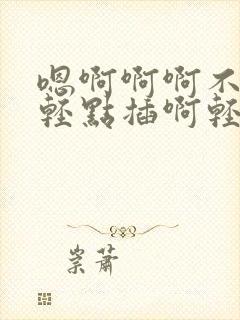 嗯啊啊啊不
輕點插啊輕
崇蕭